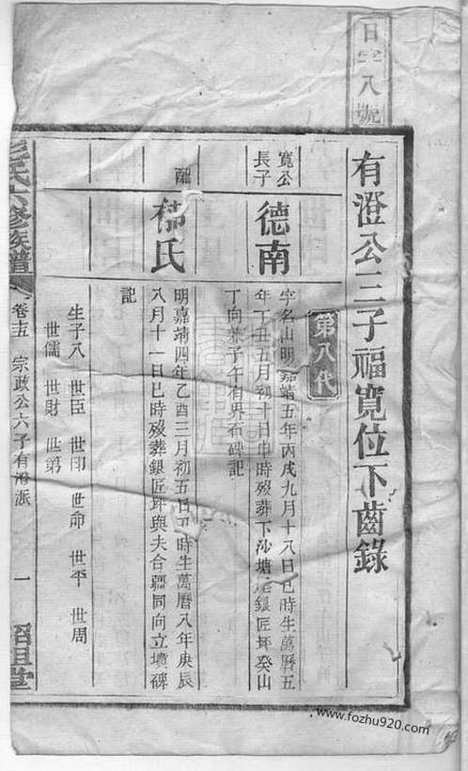 日字八號
有澄公三子福寬位下齒錄
第八代
寬公長子
德南
字名山明嘉靖五年丙戌九月十八日巳時生萬曆五
年丁丑五月初十日申時歿葬下沙塘銀匠坪癸山
丁向兼子午有界石碑記
配
氏
明嘉靖四年乙酉三月初五日丑時生萬曆八年庚辰
八月十一日巳時歿葬銀匠坪與夫合冢同向立墳碑
記
生子八 世臣 世印 世命 世平 世周
世儒 世財 世第
氏六修族譜
卷十五 宗政公六子有澄派
一
堂
www.fozhu920.com